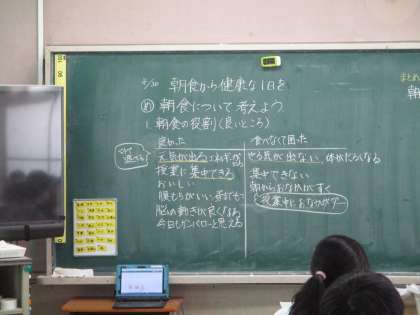 5/20 朝食から健康な1日を
め 朝食について考えよう
1. 朝食の役割(良いところ)
食べなくて困った
元気が出る エネルギーが
授業に集中できる
おいしい
脳の動きが良くなる
今日もガンバローと思える
やる気が出ない 体がだるくなる
集中できない
朝からおなかがすく
授業中におなかがグー
まとめ
朝
100
90